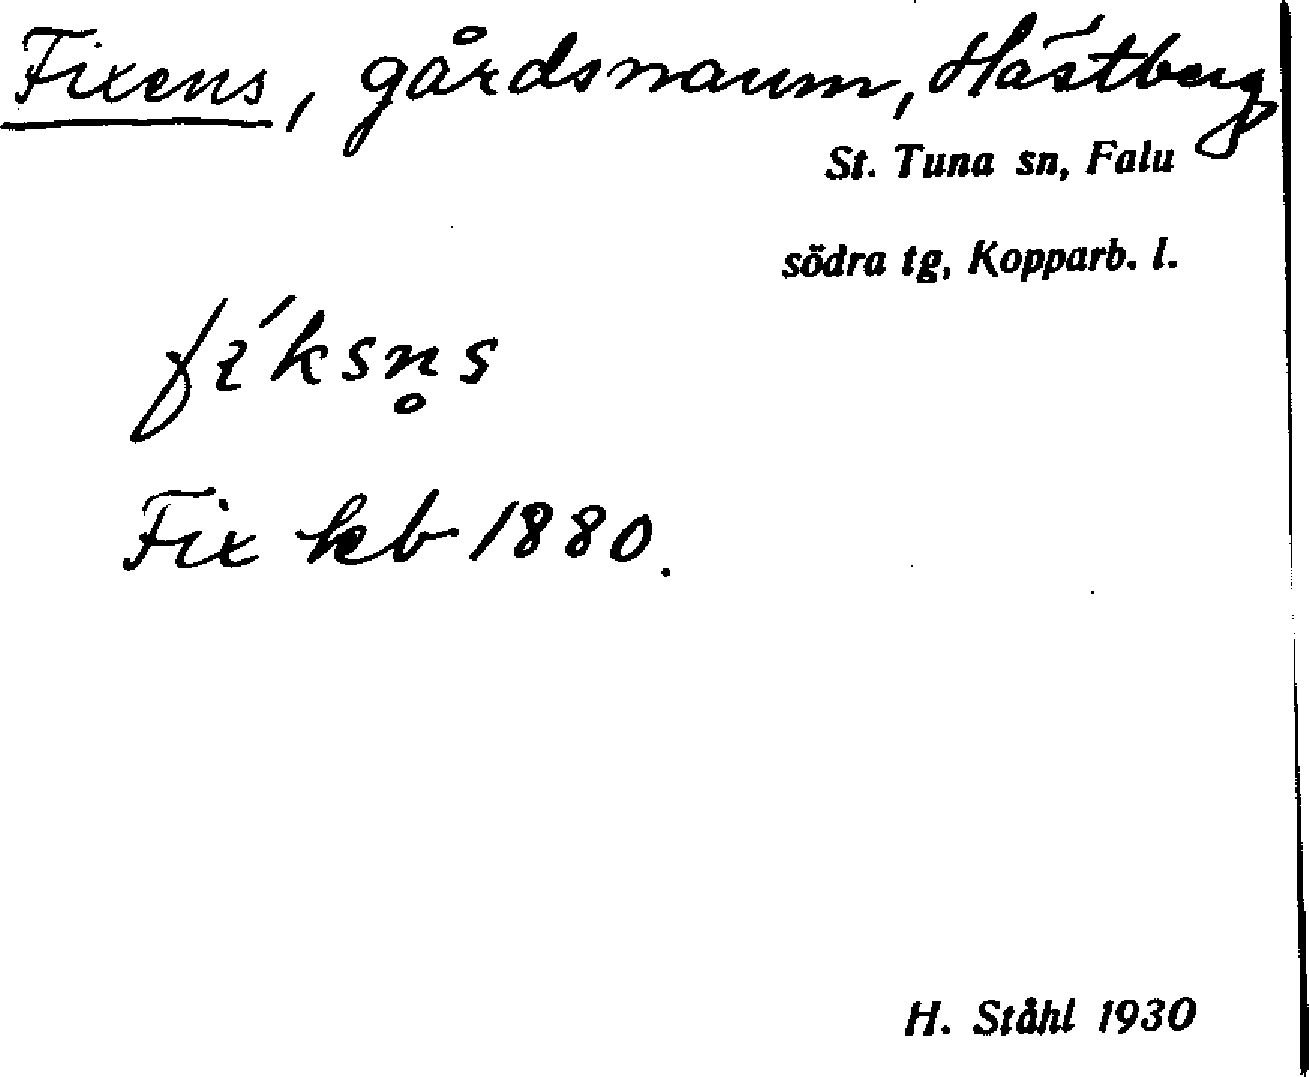 Fixens, gårdsnamn, Hästberg
St. Tuna sn, Falu
södra tg, Kopparb. l.
fíksn̥s
Fix kb 1880.
H. Ståhl 1930